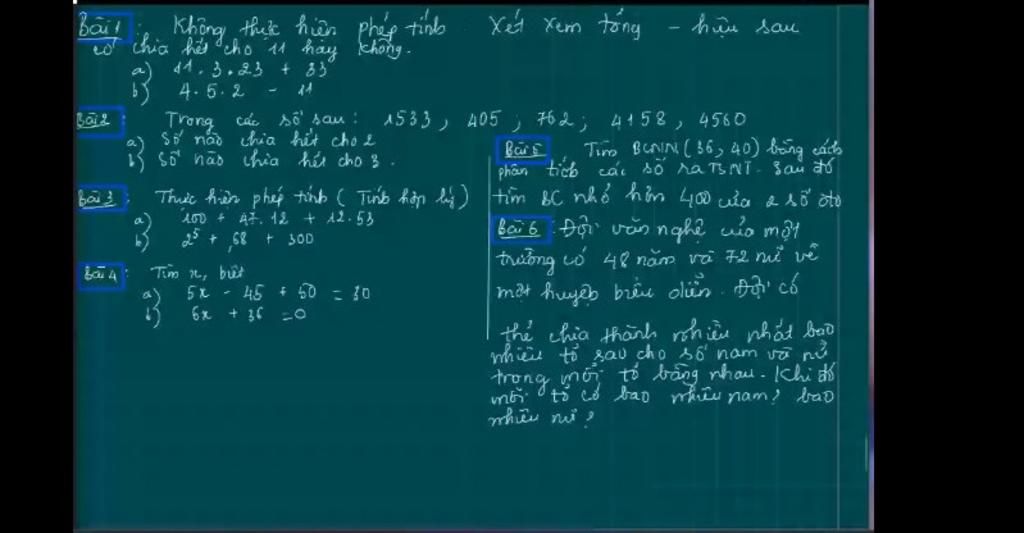 Bài 1: Không thực hiện phép tính. Xét xem tổng - hiệu sau
có chia hết cho 11 hay không.
a) 11.3.23 + 33
b) 4.5.2 - 11
Bài 2: Trong các số sau: 1533, 405, 762; 4158, 4560
a) Số nào chia hết cho 2
b) Số nào chia hết cho 3.
Bài 3: Thực hiện phép tính (Tính hợp lý)
a) 100 + 47.12 + 12.53
b) 2⁵ + 68 + 300
Bài 4: Tìm x, biết
a) 5x - 45 + 50 = 30
b) 6x + 36 = 0
Bài 5 Tìm BCNN (36, 40) bằng cách
phân tích các số ra TSNT. Sau đó
tìm BC nhỏ hơn 400 của 2 số đó
Bài 6: Đội văn nghệ của một
trường có 48 nam và 72 nữ về
một huyện biểu diễn. Đội có
thể chia thành nhiều nhất bao
nhiêu tổ sao cho số nam và nữ
trong mỗi tổ bằng nhau. Khi đó
mỗi tổ có bao nhiêu nam? bao
nhiêu nữ?